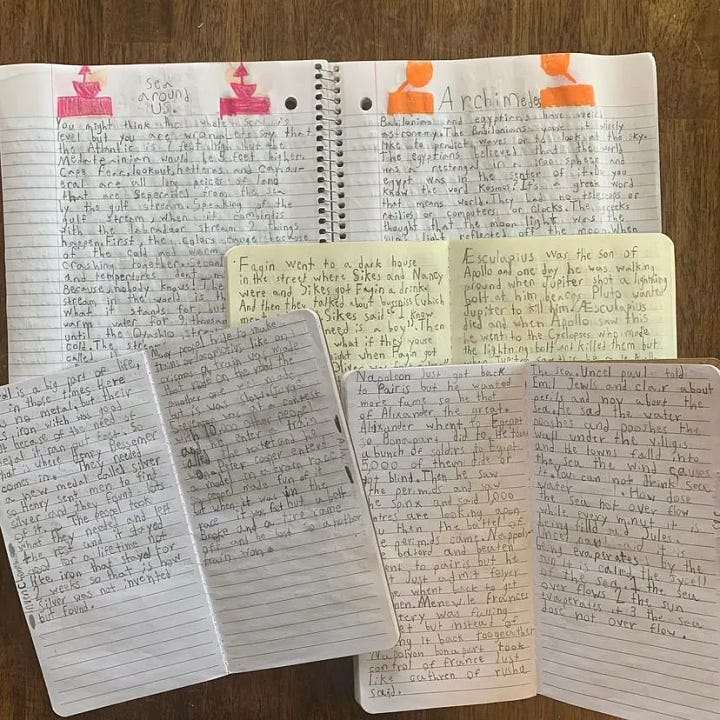 sea
around
us.
You might think the whole sea is
level but you are wrong lets say that
the Atlantic is 1 feet high but the
would be 5 feet higher.
Cape fear, lookout, hetteras and
eral are all long peices of land
that are seperated from the sea
ly the gulf stream. Speaking of the
gulf stream, when it combinds
with the labradear stream 2 things
happen First, the colors change because
of the cold and warm
crashing together. Second
and temperatures don't
Because nobody knows! The
stream in the world is the
what it stands for, but
warm water for 9, thousand
until the Oyashio stream
cold. The stream
called
Archimedes
and egyptians have weird
astronomy. The Babilonians youse it wisely
like to predict waves or to look at the sky.
The egyptians believed that the world
was a rectangel in a iron sphere and
egypt was in the senter of it. Do you
know the word Kosmos? It's a greek word
that means world. They had no telescops or
radios or computers or clocks. The greeks
thought that the moon light was the
sun's light reflected off the moon. When
Fagin went to a dark house
in the street where Sikes and Nancy
were and Sikes got Fagin a drink.
And then they talked about buysniss Cubich
Sikes said "I know
need is a boy" Then
what if they youse
right when Fagin got
Æsculapius was the son of
Apollo and one day he was walking
around when Jupiter shot a lightning
bolt at him becaos Pluto wanted
Jupiter to kill him. Æsculapius
died and when Apollo saw this
he went to the Cyclopse who made
the lightning bolt and killed them but
al is a big part of life,
in those times there
no metal but their
iron witch was good
but because of the need of
metal it ran out
that is where Henry Bessener
comes in. They needed
a new medal called silver
so Henry sent men to find
silver and they found lots
of it. The peopel took
what they needed and left
the rest and it stayed
good for a lifetime not
like iron that stayed for
2 weeks so that is how
silver was not invented
but found.
people tride to make
trains or locomotives like
made
the rode
another one was made
but is was slow. Jorge
was at a contest
with 10,000 other peopel
and he enterd a train
called The Rocket and his
copeter cooper enterd
a model in the cram race
peopel made fun of it
but when it was in the
race it was fast but a belt
broke and a pice came
off and he lost so a nother
train won.
Napoleon Just got back
to Pairis but he wanted
more fame so he that
of Alixander the great.
Alixander whent to Egept
so Bonopart did to. He took
a bunch of soldirs to Egipt
5,000 of them died
got blind. Then he saw
the perimids and saw
the Spinx and said 1,000
looking apon
you that is the battel of
the perimids came. Napolyon
and beaten
went to pairis but he
Just admit
he whent back to it
then. Menewile frances
was falling
but instead of
ing it back toogeather
Napolyon bonapart took
control of france Just
like cathren of rusha
said.
The sea. Uncel puyul told
Emil Jewls and clair about
perils and Noy about the
sea. He sad the water
pooshes and pooshes the
wall under the villigis
and the towns fall into
the sea the wind causes
it. You can not drink sea
water. How dose
the sea not over flow
while every minut it is
being filld sad Jules.
Uncel paul said it is
being evaperated by the
sun it is called the sycell
of the sea. 1 the sea
over flows 2 the sun
evaperates it 3 the sea
dose not over flow.